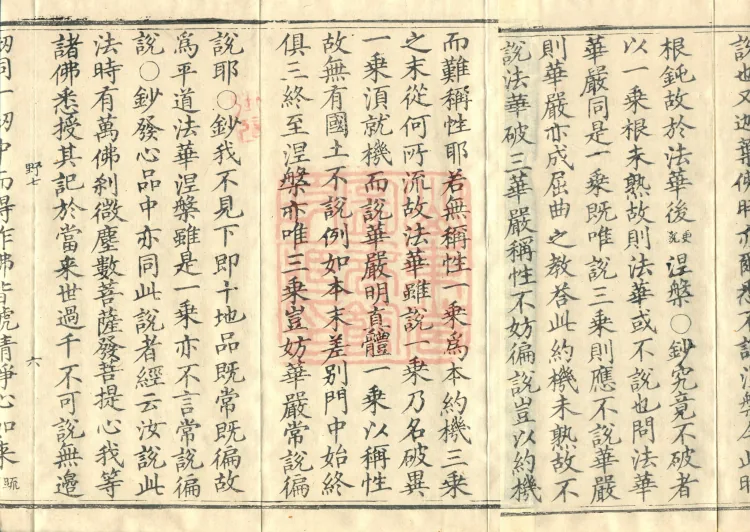 根鈍故於法華後更說涅槃○鈔究竟不破者
以一乗根未熟故則法華或不說也問法華
華嚴同是一乗既唯說三乗則應不說華嚴
則華嚴亦成屈曲之教荅此約機未熟故不
說法華破三華嚴稱性不妨徧說豈以約機
而難稱性耶若無稱性一乗爲本約機三乗
之末從何所流故法華雖說一乗乃名破異
一乗湏就機而說華嚴明真體一乗以稱性
故無有國土不說例如本末差别門中始終
俱三終至涅槃亦唯三乗豈妨華嚴常說徧
說耶○鈔我不見下即十地品既常既徧故
爲平道法華涅槃雖是一乗亦不言常說徧
說○鈔發心品中亦同此說者經云汝說此
法時有萬佛刹微塵數菩薩發菩提心我等
諸佛悉授其記於當来世過千不可說無邉
野七
六